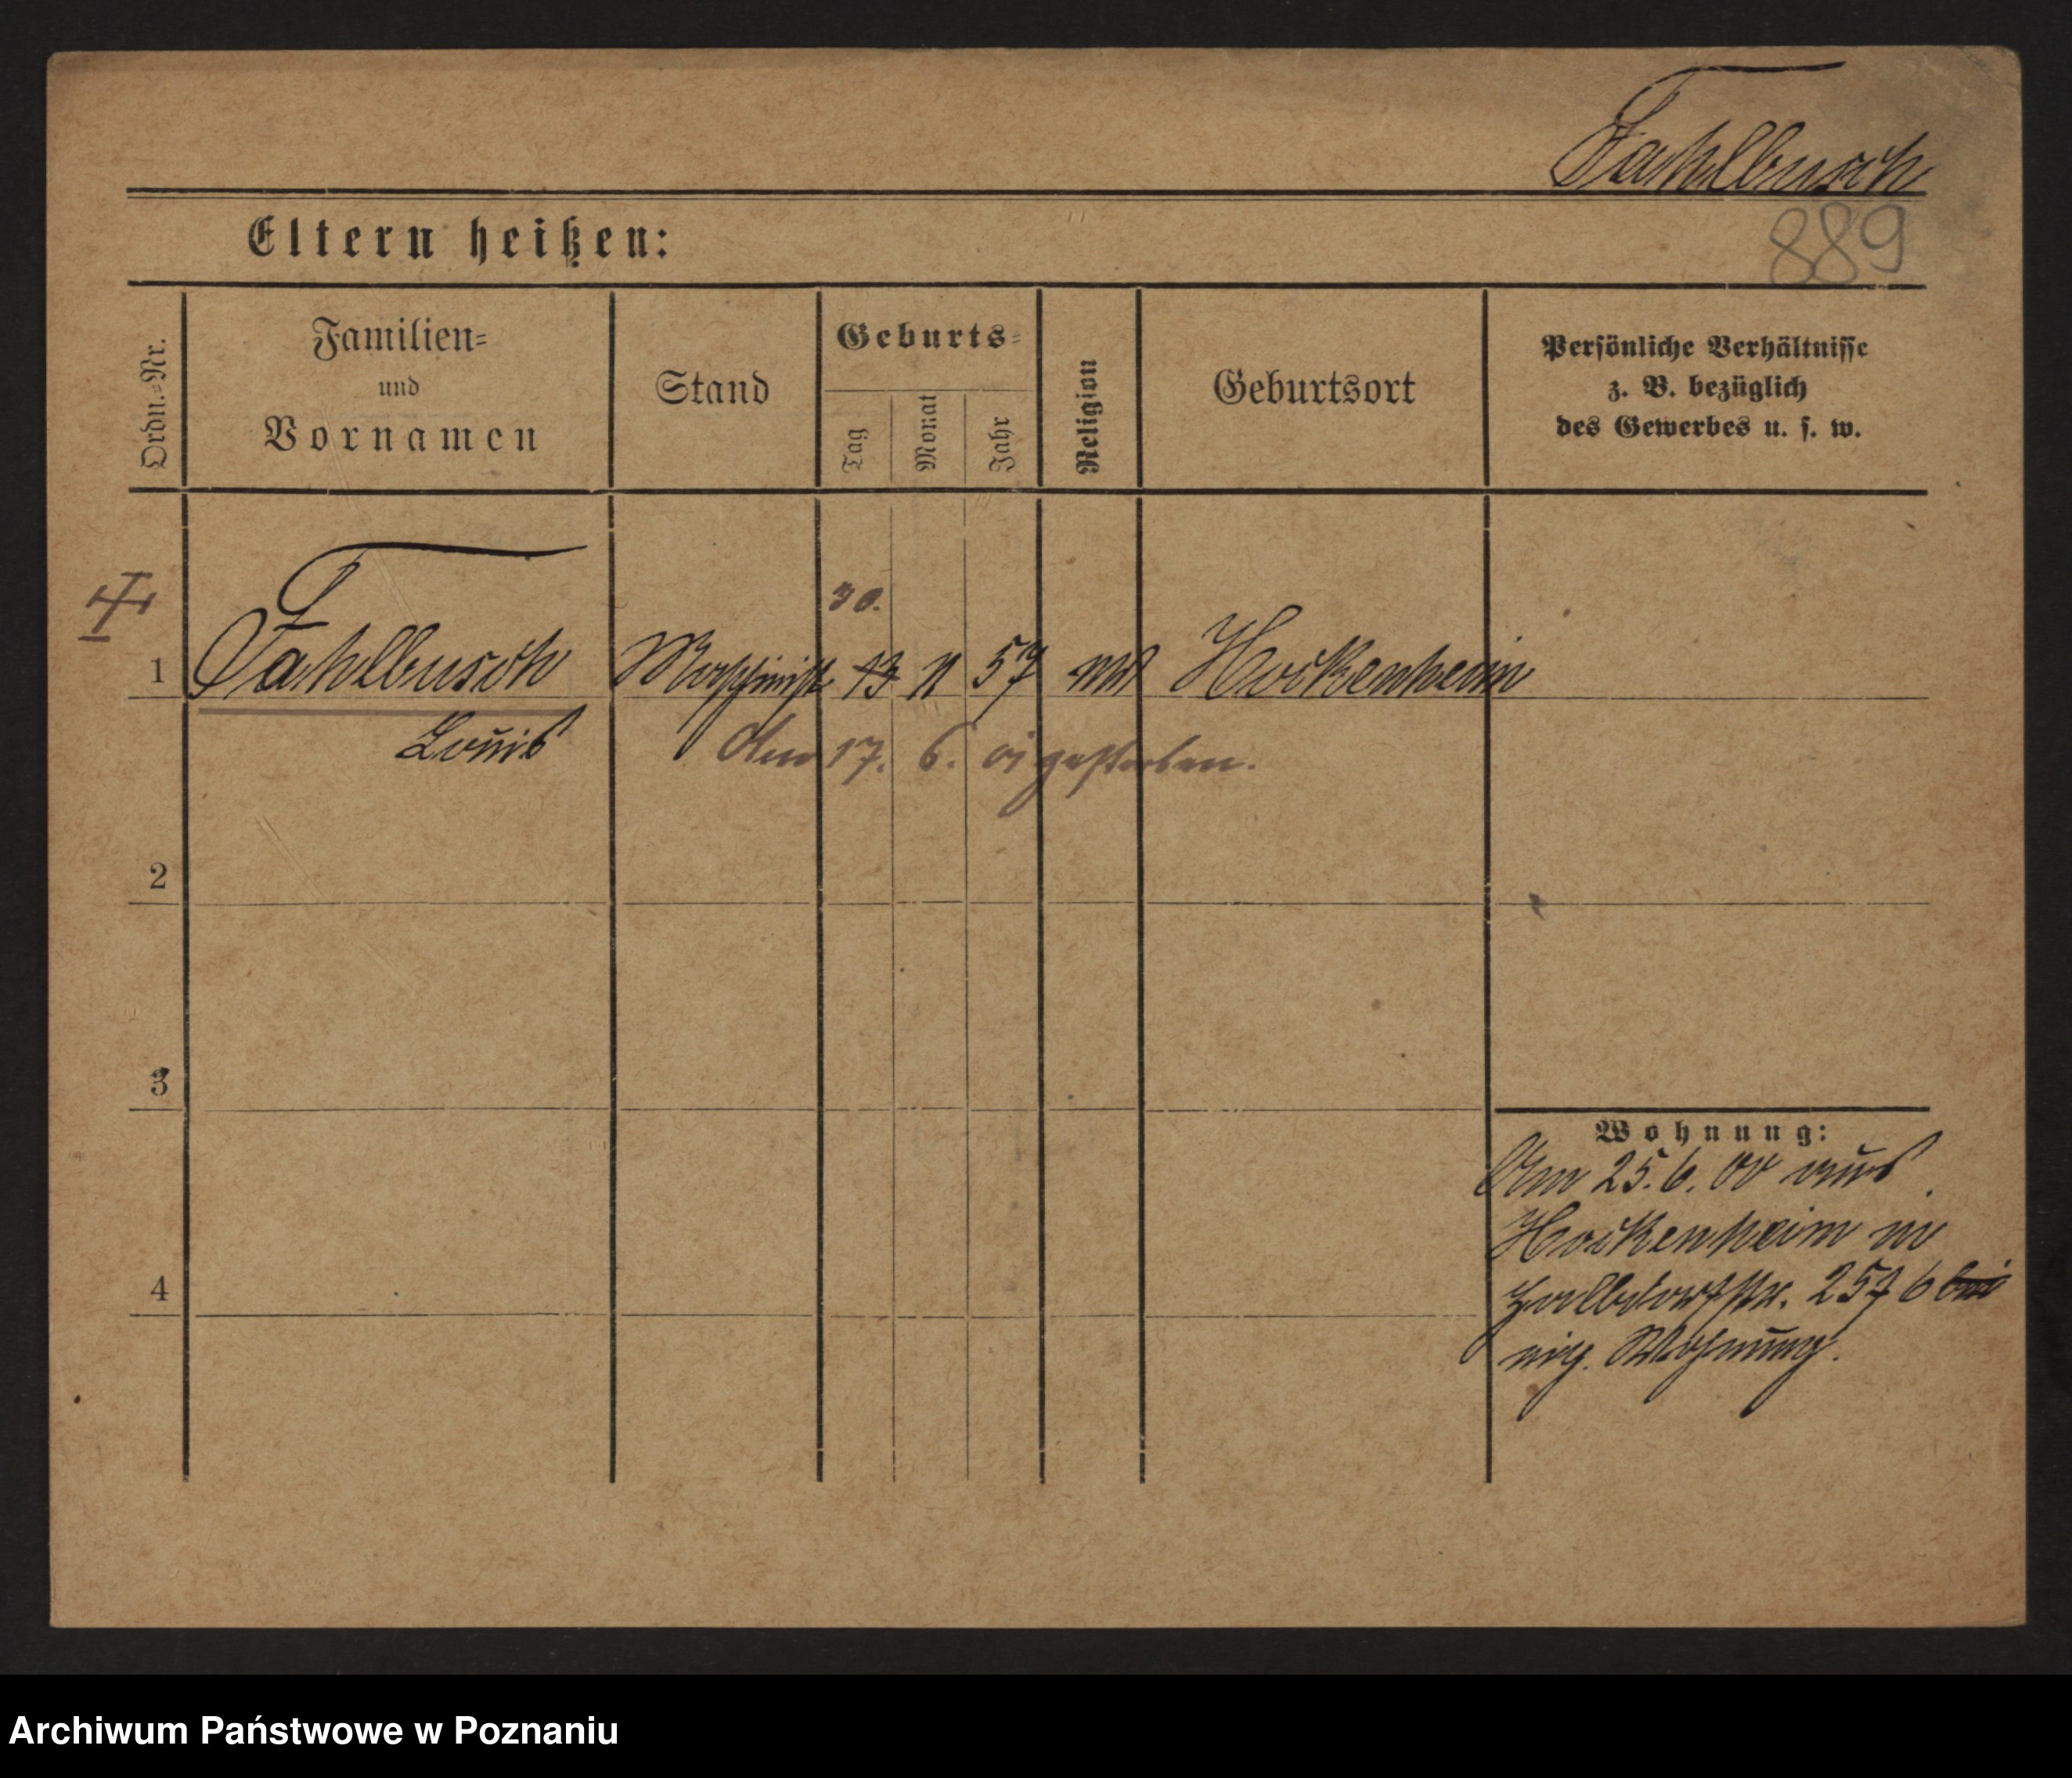 Fahlbusch
889
Eltern heißen:
Ordn.-Nr.
Familien-
und
Vornamen
Stand
Geburts-
Tag
Monat
Jahr
Religion
Geburtsort
Persönliche Verhältnisse
z. B. bezüglich
des Gewerbes u. s. w.
30.
1 Fahlbusch Maschinist 13 11 57 Hockenheim
Louis Am 17. 6. 01 gestorben.
2
3
Wohnung:
Am 25. 6. 00 aus
Hockenheim
4
257 6 bei
eig. Wohnung.
Archiwum Państwowe w Poznaniu